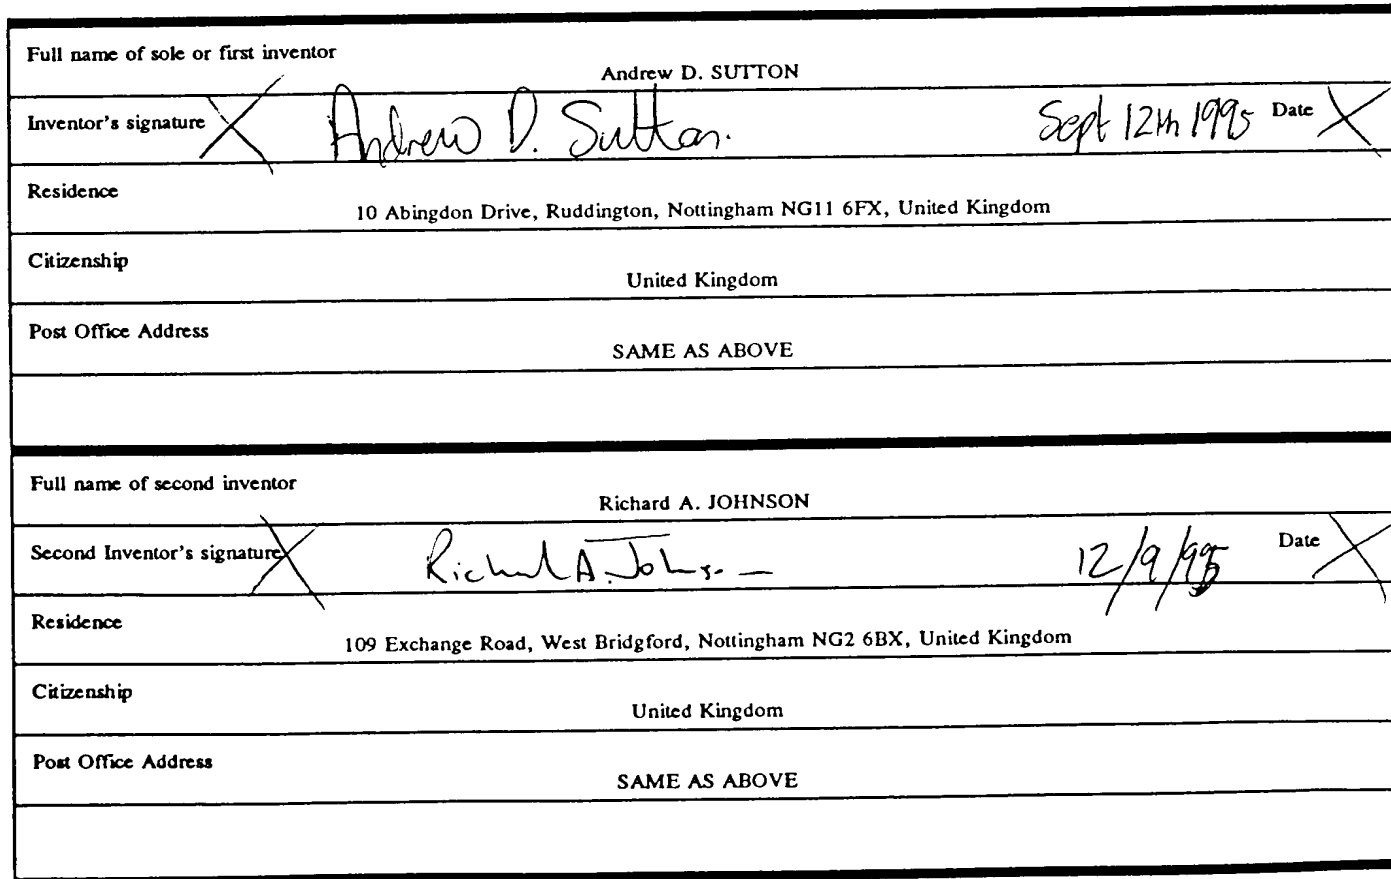 Full name of sole or first inventor
Andrew D. SUTTON
Inventor's signature Andrew D. Sutton. Sept 12th 1995 Date
Residence
10 Abingdon Drive, Ruddington, Nottingham NG11 6FX, United Kingdom
Citizenship
United Kingdom
Post Office Address
SAME AS ABOVE
Full name of second inventor
Richard A. JOHNSON
Second Inventor's signature Richard A. Johnson 12/9/95 Date
Residence
109 Exchange Road, West Bridgford, Nottingham NG2 6BX, United Kingdom
Citizenship
United Kingdom
Post Office Address
SAME AS ABOVE